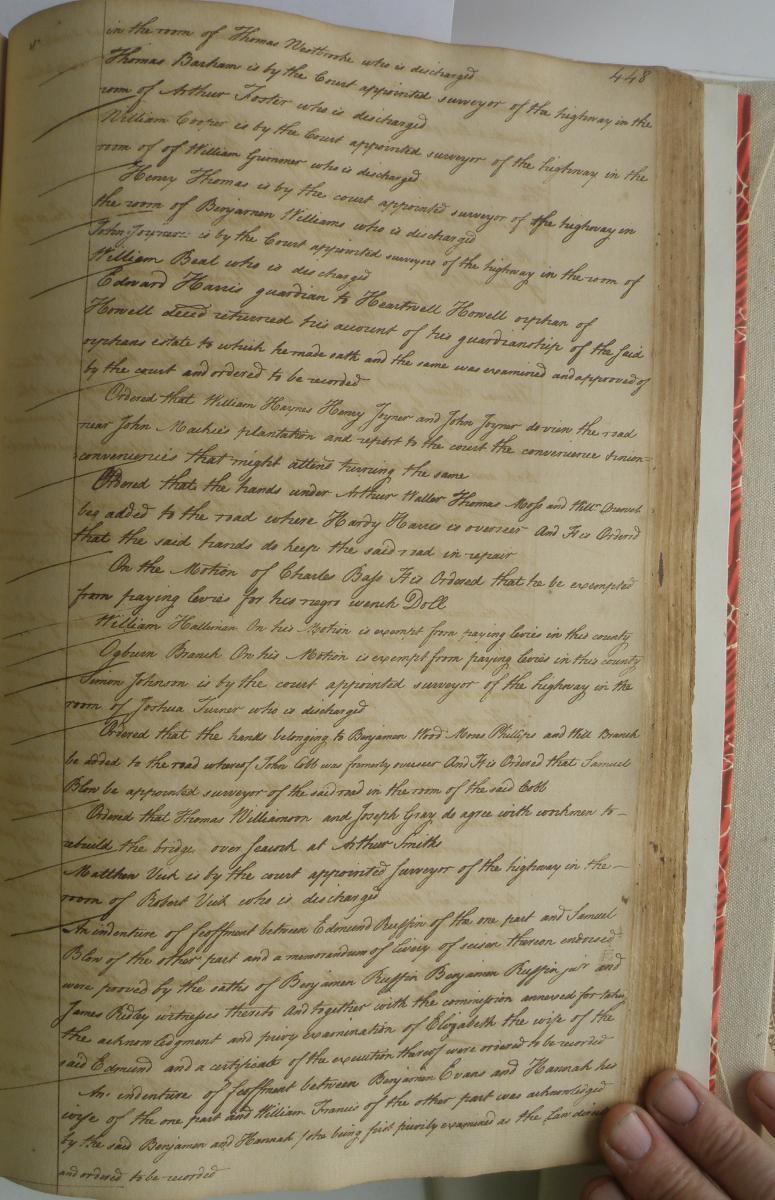 448
in the room of Thomas Westbrooke who is discharged
Thomas Barham is by the Court appointed surveyor of the highway in the
room of Arthur Foster who is discharged
William Cooper is by the Court appointed surveyor of the highway in the
room of of William Gurnmer who is discharged
Henry Thomas is by the court appointed surveyor of the highway in
the room of Benjamen Williams who is discharged
John Joyner is by the Court appointed surveyor of the highway in the room of
William Beal who is discharged
Edward Harris guardian to Heartwell Howell orphan of
Howell deced returned his account of his guardianship of the said
orphans estate to which he made oath and the same was examined and approved of
by the court and ordered to be recorded
Ordered that William Haynes Henry Joyner and John Joyner do view the road
near John Mackie's plantation and report to the court the convenience & incon-
conveniences that might attend turning the same
Ordered that the hands under Arthur Waller Thomas Moss and Will
beg added to the road where Hardy Harris is overseer And It is Ordered
that the said hands do keep the said road in repair
On the Motion of Charles Bass It is Ordered that he be exempted
from paying levies for his negro wench Doll
William Halliman On his Motion is exempt from paying levies in this county
Ogburn Branch On his Motion is exempt from paying levies in this county
Simon Johnson is by the court appointed surveyor of the highway in the
room of Joshua Turner who is discharged
Ordered that the hands belonging to Benjamen Wood Moses Phillips and Will Branch
be added to the road whereof John Cobb was formerly overseer And It is Ordered that Samuel
Blow be appointed surveyor of the said road in the room of the said Cobb
Ordered that Thomas Williamson and Joseph Gray do agree with workmen to-
rebuild the bridge over Seacock at Arthur Smiths
Matthew Vick is by the court appointed Surveyor of the highway in the-
room of Robert Vick who is discharged
An indenture of feoffment between Edmund Ruffin of the one part and Samuel
Blow of the other part and a memorandum of livery of seisen thereon endorsed
were prooved by the oaths of Benjamen Ruffin Benjamen Ruffin junr and
James Ridley witnesses thereto And together with the comission annexed for taking
the acknowledgment and privy examination of Elizabeth the wife of the
said Edmund and a certificate of the execution thereof were ordered to be recorded
An indenture of feoffment between Benjamen Evans and Hannah his
wife of the one part and William Francis of the other part was acknowledged
by the said Benjamen and Hannah she being first privily examined as the Law directs
and ordered to be recorded